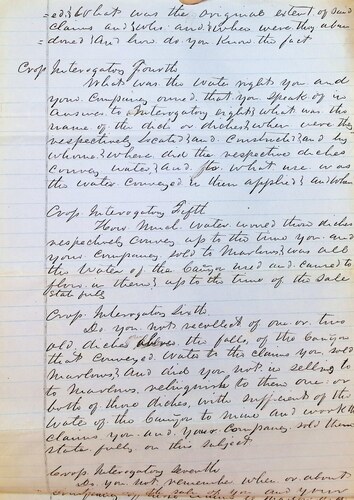 =ed? & What was the original extent of said
claims and? & Who and? & When were they aban
=doned? And how do you know the fact
Cros. Interrogatory Fourth
What was the Water right you and
your Company owned that you speak of in
answer to Interrogatory eight? what was the
name of the ditch or ditches? When were they
respectively located? and Constructed? and by
whome? & Where did the respective ditches
Convey water? And for what use was
the water Conveyed to them applied? and When
Cros. Interrogatory Fifth
How Much Water would those ditches
respectively Convey up to the time you and
your Companey sold to Marlows? & was all
the Water of the Canyon used and caused to
flow in them? & up to the time of the Sale
State fully
Cros. Interrogatory Sixth
Do you not recollect of one or two
old ditches above the falls, of the Canyon
that Conveyed Water to the claims you sold
Marlows? And did you not in selling to
to Marlows relinquish to them one or
both of those ditches, with sufficient of the
Water of the Canyon to mine and work the
Claims you and your Companey sold them
State fully on this subject.
Cros Interrogatory Seventh
Do you not remember when or about
the and your